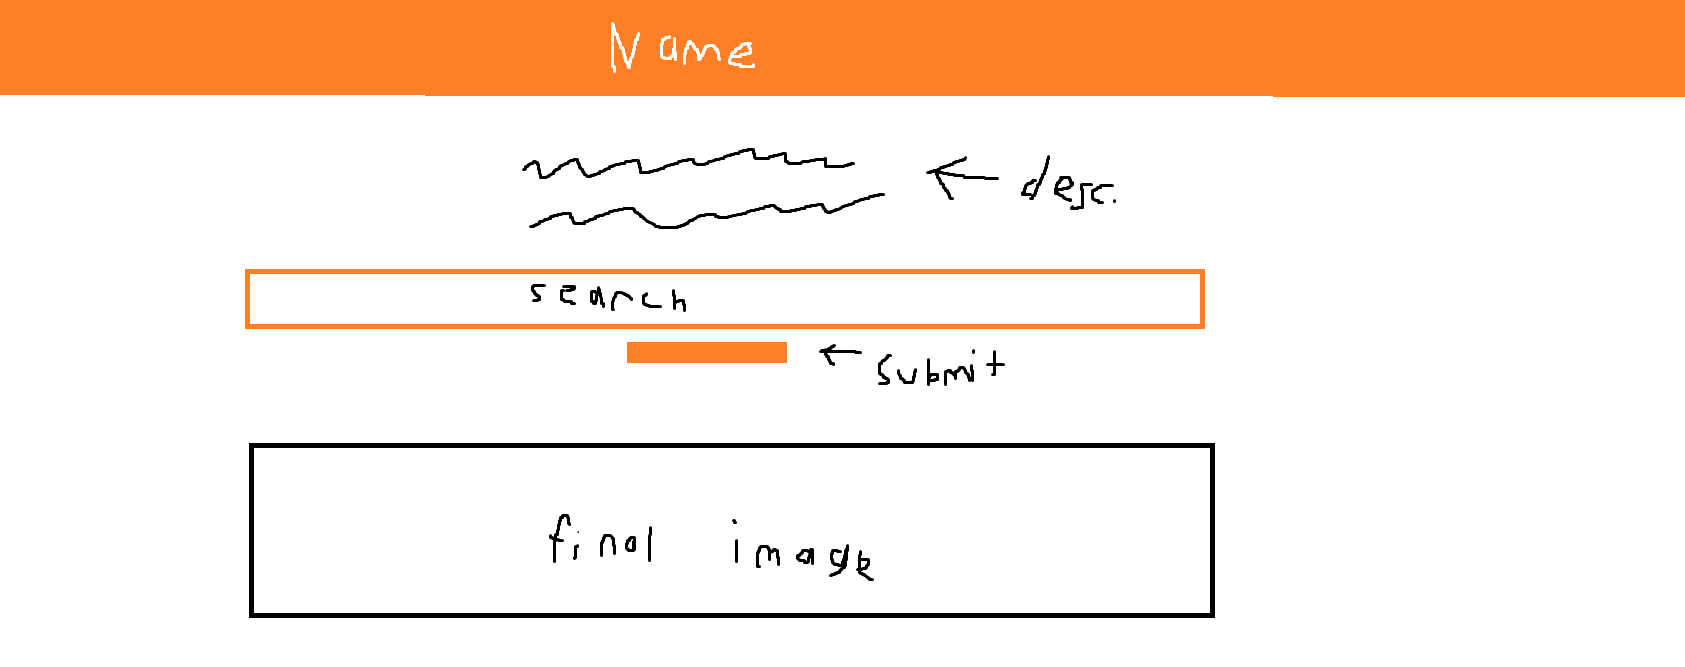 Name
desc.
search
submit
final image